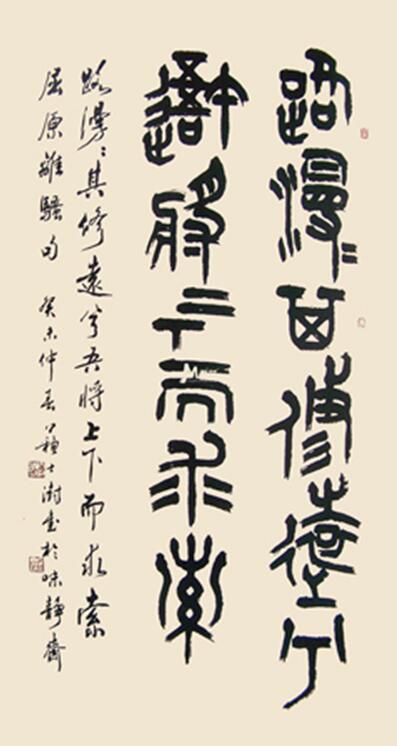 路漫〻其修遠兮
吾將上下而求索
路漫〻其修遠兮吾將上下而求索
屈原離騷句 癸未仲春蘇士澍書於味靜齋